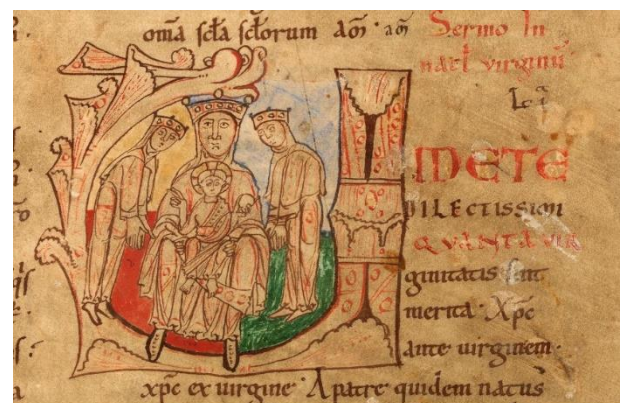 om̄a scl̄a scl̄orum am̄ · am̄
Sermo In
nat̄l virginū
IDETE
DILECTISSIOM
QVANTA VIR
ginitatis sint
merita · Xpc̄
ante uirginem ·
xpc̄ ex uirgine · A patre quidem natus